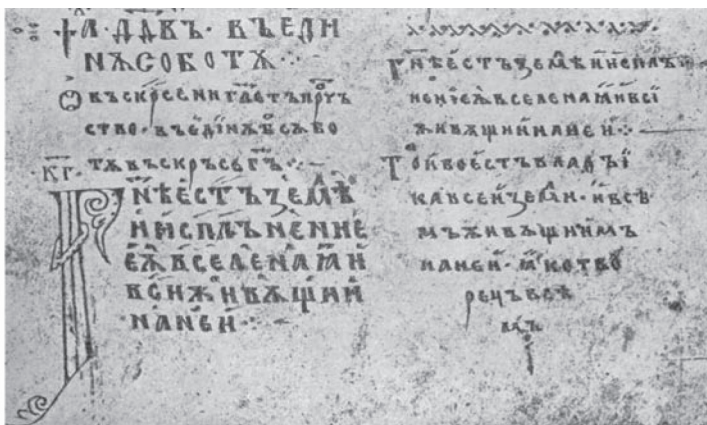 ѰЛ · ДАВЪ · ВЪ ЕДИ
НѪ СОБОТѪ ·:·
Ѡ въскрсени глетъ пррч
ство · въ едінѫ бѡ сѫбо
к҃г · тѫ въскръсе г҃ь ·:·
Г҃нѣ естъ ꙁемлѣ
и исплъненіе
еѫ вселенаа и
вси живѫщии
на неи ·:·
Г҃нѣ естъ ꙁемлѣ и исплъ
неніе еѫ вселенаа и всі
живѫщии на неи ·:·
Той бо естъ владъі
ка всеи ꙁемли · и всѣ
мъ живѫщиимъ
на неи · ꙗко тво
рецъ всѣ
мъ